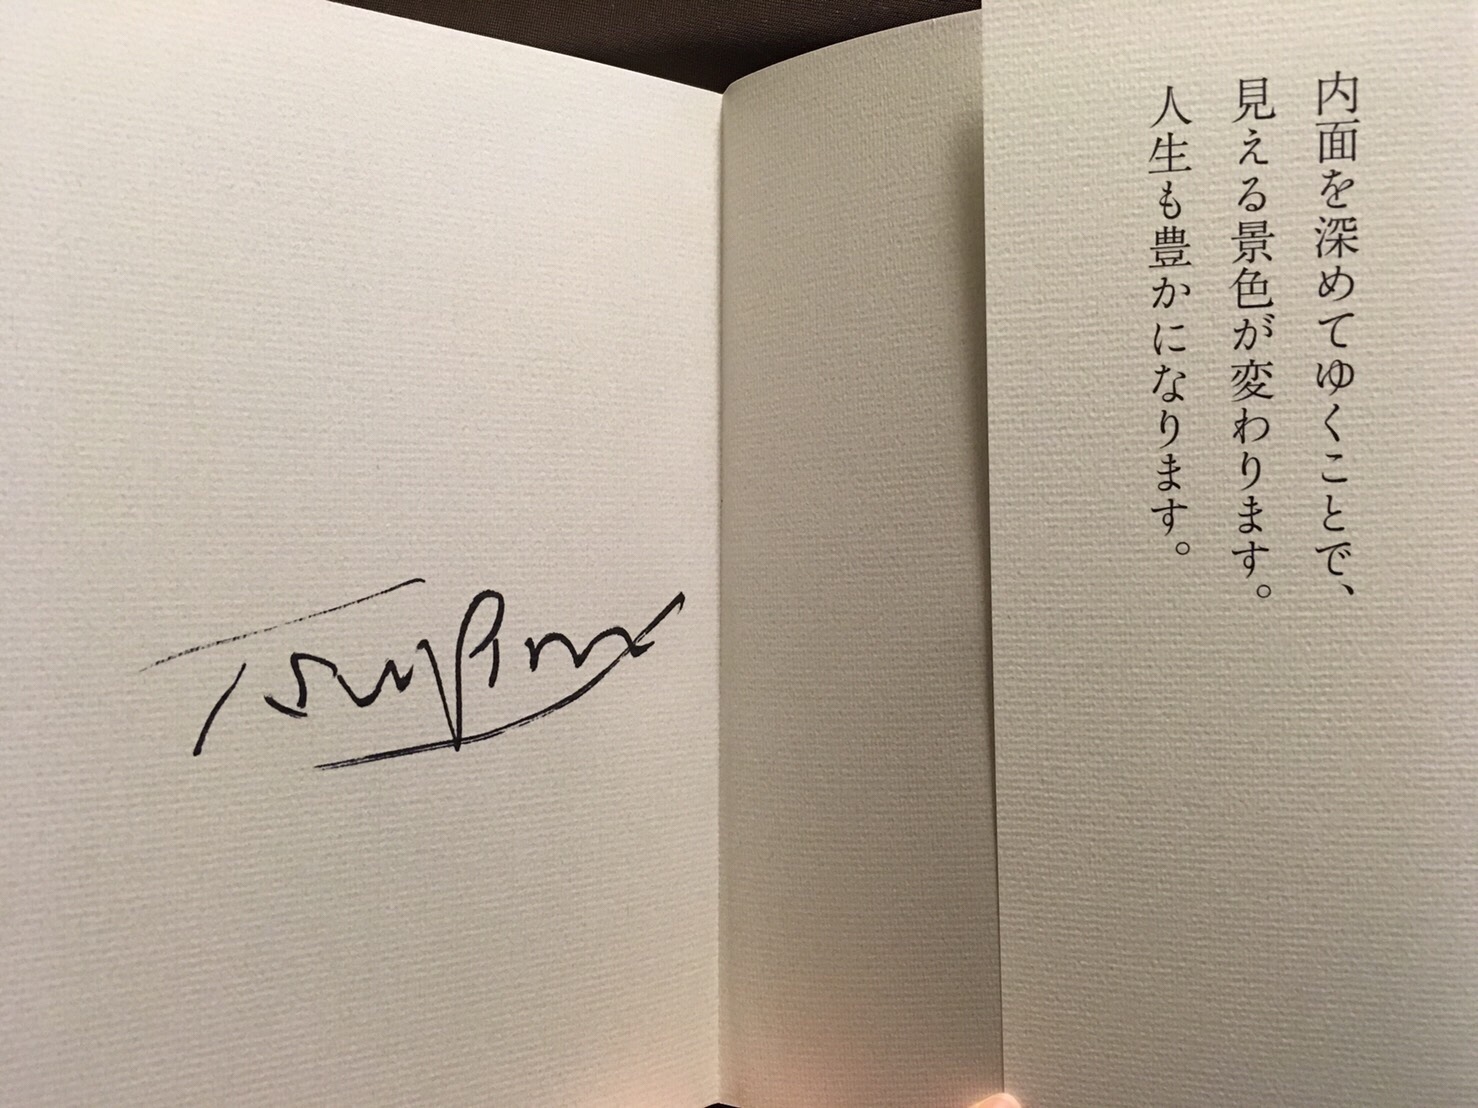 内面を深めてゆくことで、
見える景色が変わります。
人生も豊かになります。